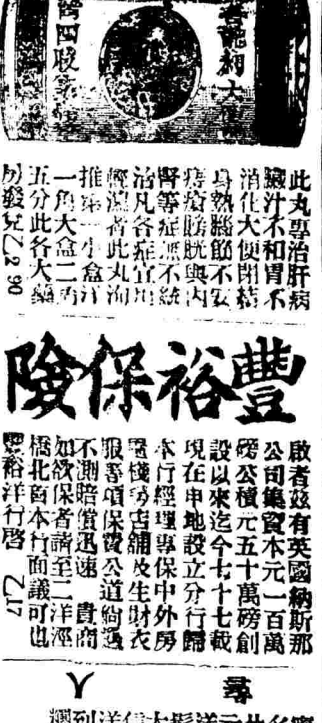 此丸專治肝病
臟汁不和胃不
消化大便閉結
身熱腦筋不安
痔瘡膀胱與內
腎等症無不統
治凡各症宜用
輕瀉者此丸洵
推第一小盒洋
一角大盒二角
五分此各大藥
房發兌乙290
豐裕保險
啟者茲有英國納斯那
公司集資本元一百萬
磅公積元五十萬磅創
設以來迄今七十七載
現在申地設立分行歸
本行經理專保中外房
屋棧房店舖及生財衣
服等項保費公道倘遇
不測賠償迅速 貴商
如欲保者請至二洋涇
橋北首本行面議可也
豐裕洋行啓 乙17